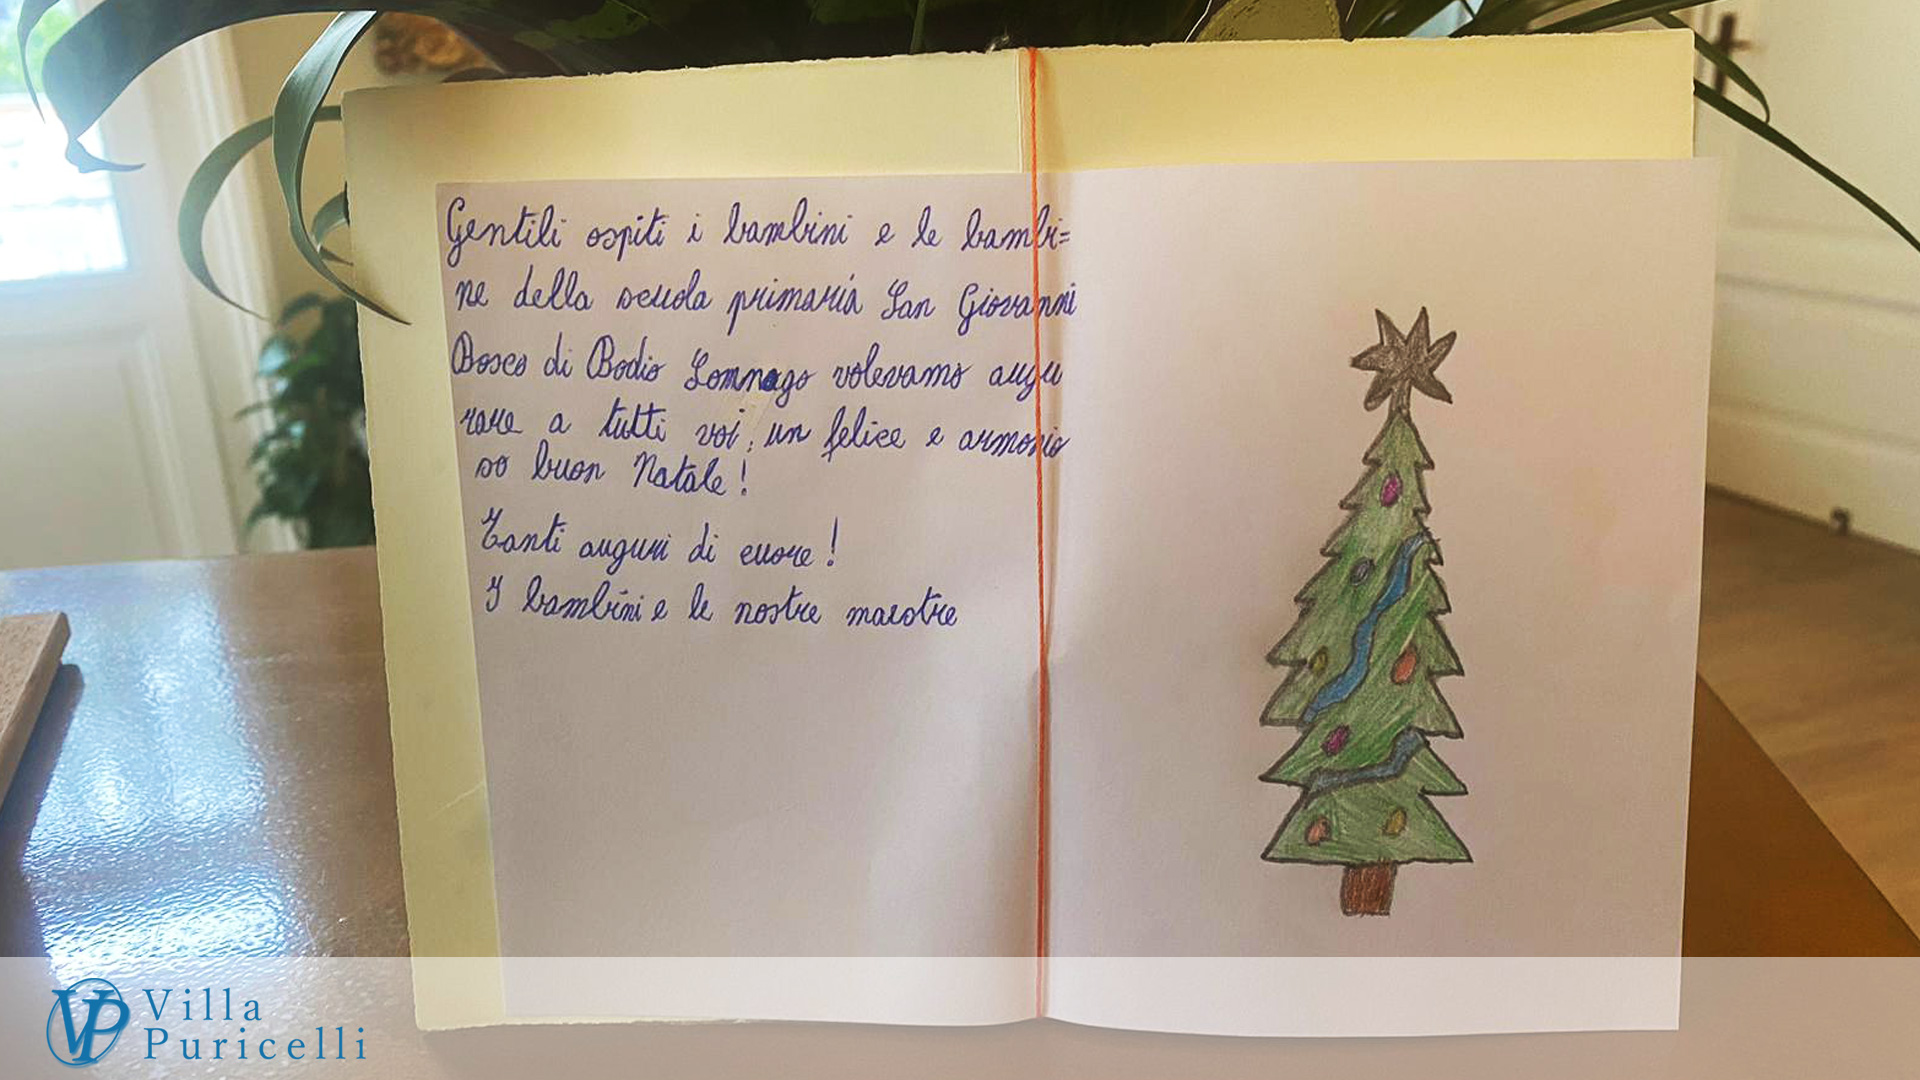 Gentili ospiti i bambini e le bambi=
ne della scuola primaria San Giovanni
Bosco di Bodio Lomnago volevamo augu
rare a tutti voi, un felice e armonio
so buon Natale!
Tanti auguri di cuore!
I bambini e le nostre maestre
VP Villa
Puricelli